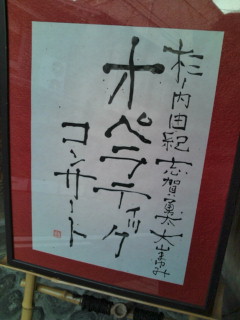 杉ノ内由紀 志賀
オペラティック
コンサート